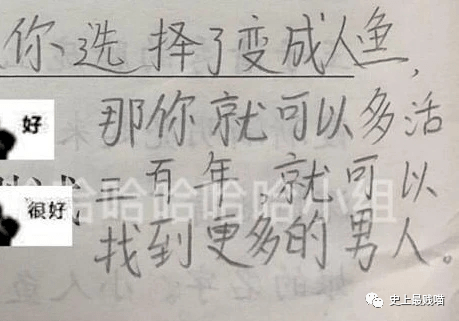 你选择了变成人鱼,
好
那你就可以多活
三百年,就可以
哈哈哈哈哈小组
很好
找到更多的男人。
史上最贱喵